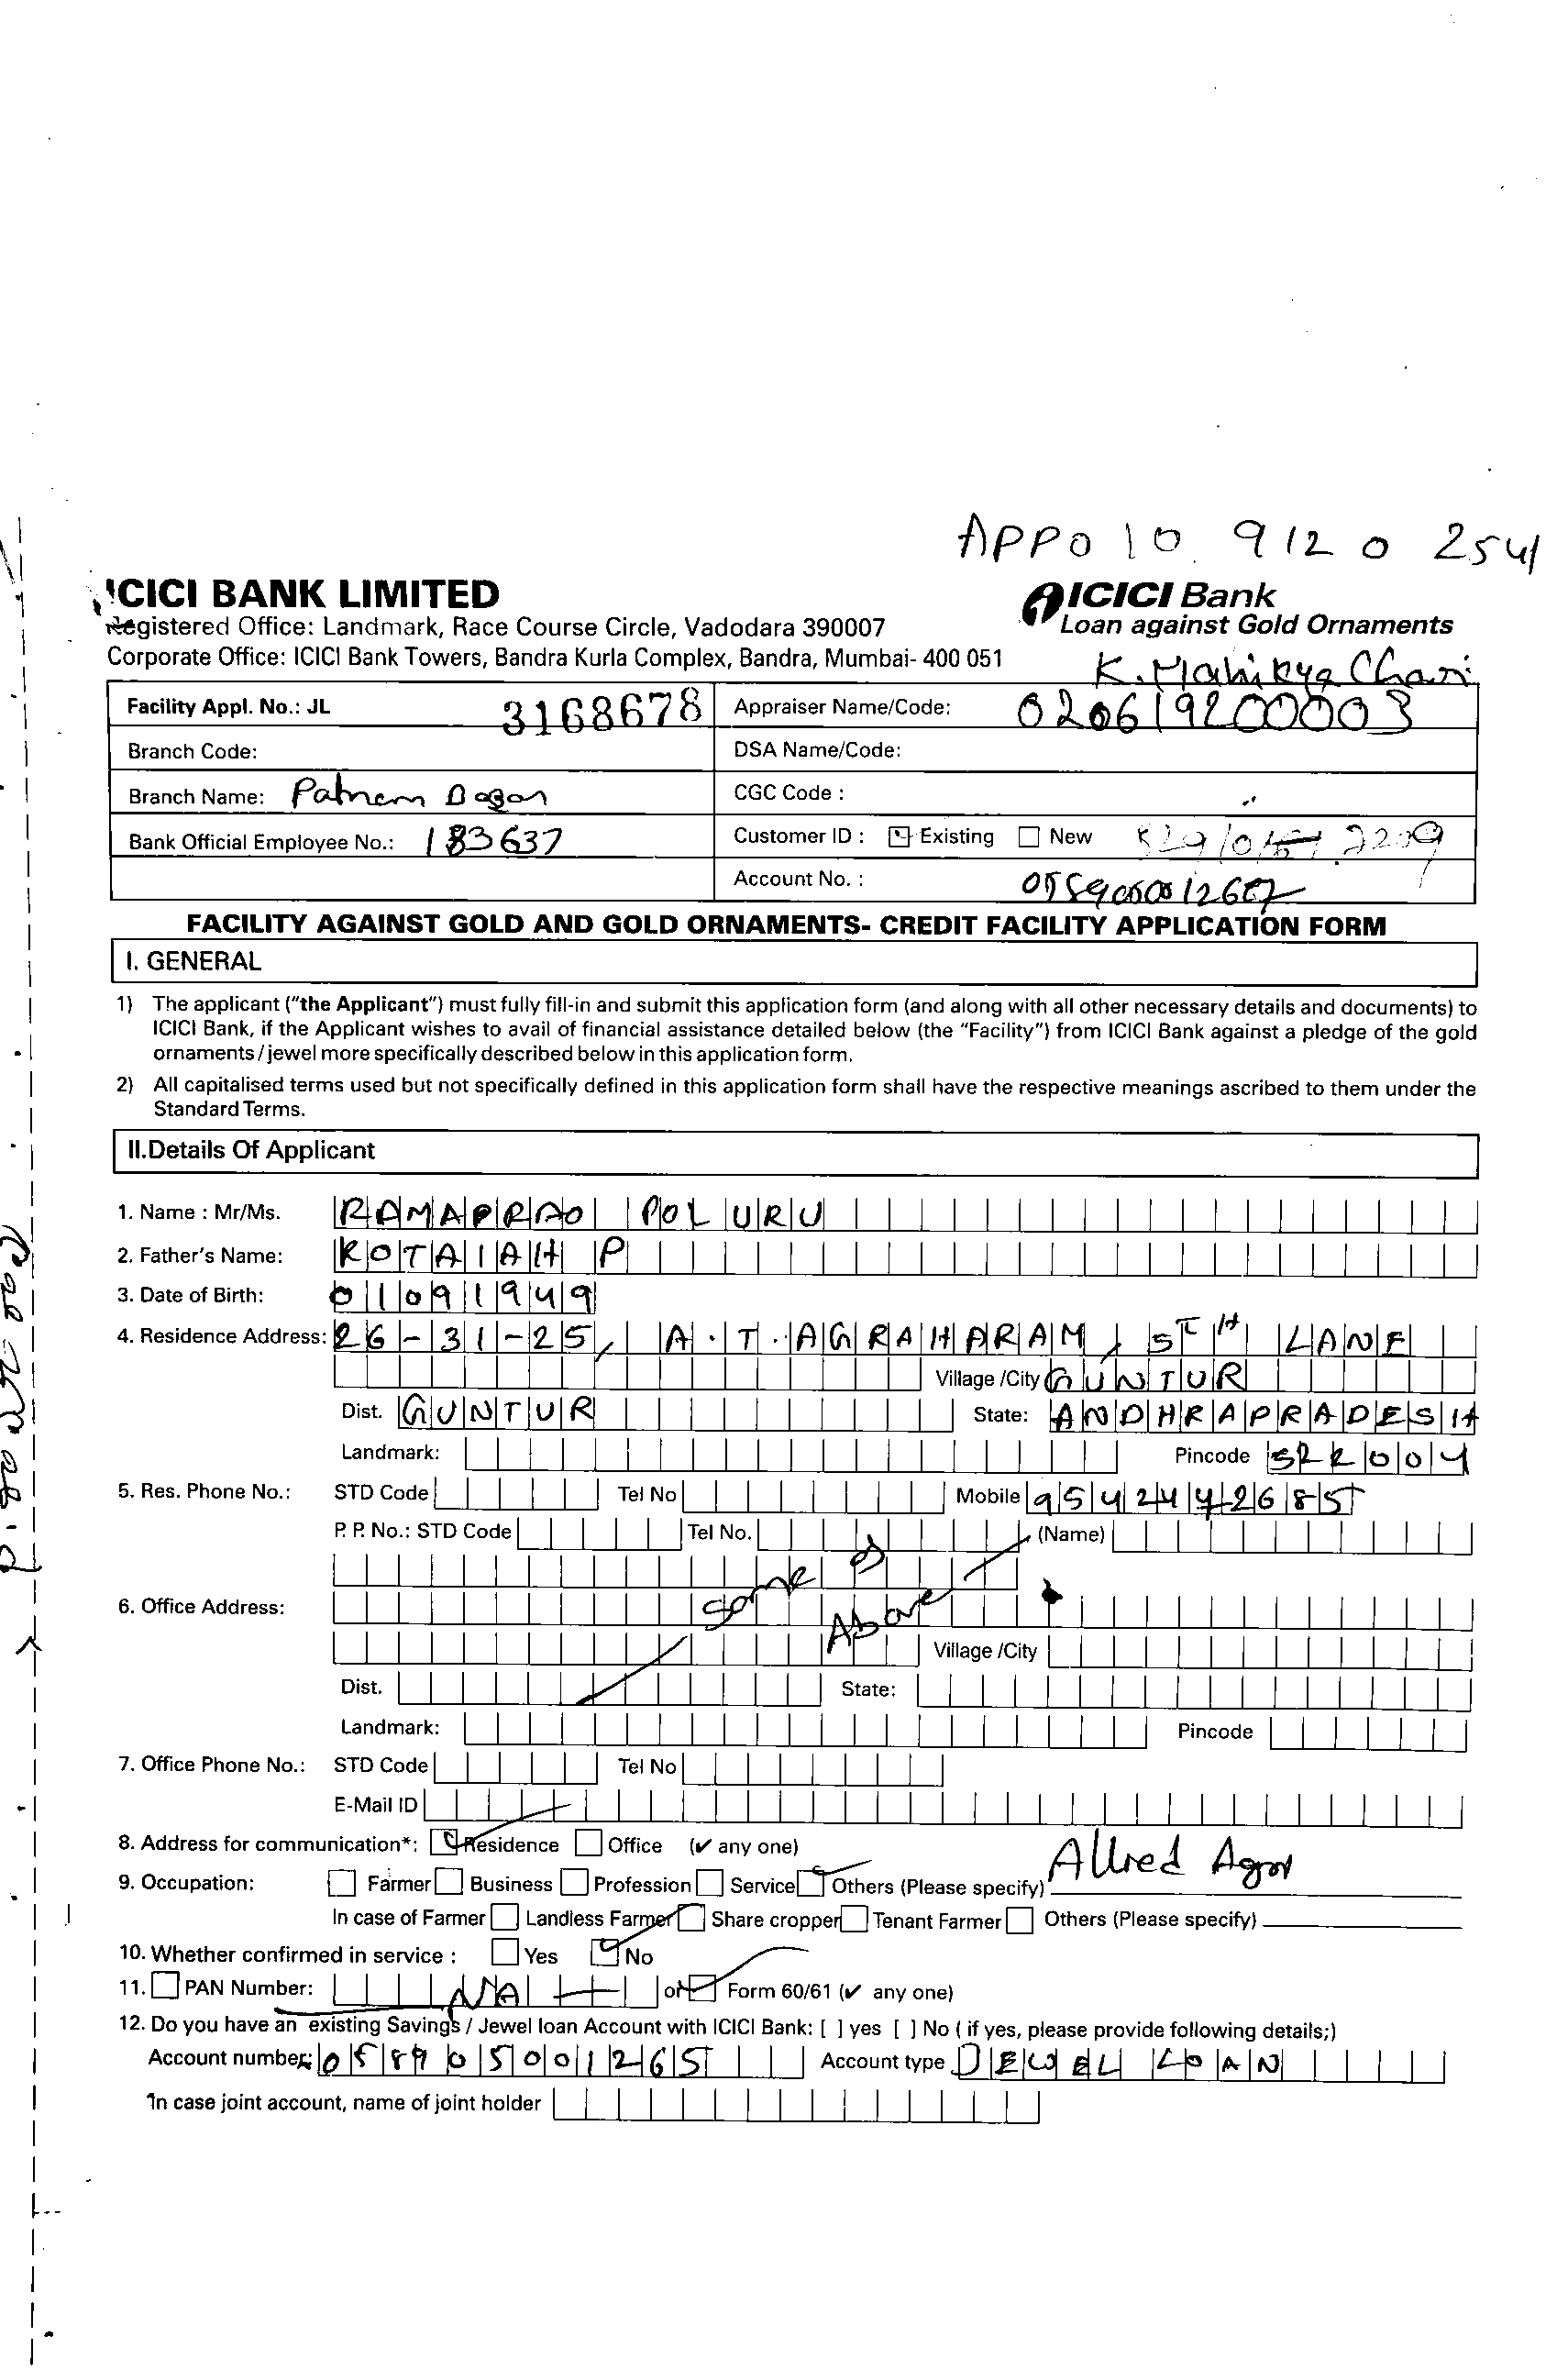 APP010 912 0 2541
ICICI BANK LIMITED
ICICI Bank
Registered Office: Landmark, Race Course Circle, Vadodara 390007
Loan against Gold Ornaments
Corporate Office: ICICI Bank Towers, Bandra Kurla Complex, Bandra, Mumbai- 400 051
Facility Appl. No.: JL 3168678
Appraiser Name/Code: 020619200003
Branch Code:
DSA Name/Code:
Branch Name:
CGC Code :
Bank Official Employee No.: 183637
Customer ID : Existing New
Account No. :
FACILITY AGAINST GOLD AND GOLD ORNAMENTS- CREDIT FACILITY APPLICATION FORM
I. GENERAL
1) The applicant ("the Applicant") must fully fill-in and submit this application form (and along with all other necessary details and documents) to
ICICI Bank, if the Applicant wishes to avail of financial assistance detailed below (the "Facility") from ICICI Bank against a pledge of the gold
ornaments/jewel more specifically described below in this application form.
2) All capitalised terms used but not specifically defined in this application form shall have the respective meanings ascribed to them under the
Standard Terms.
II.Details Of Applicant
1. Name : Mr/Ms. RAMAPRAO POLURU
2. Father's Name: KOTAIAH P
3. Date of Birth: 01091949
4. Residence Address: 26-31-25, A.T. AGRAHARAM, 5TH LANE
Village /City GUNTUR
Dist. GUNTUR State: ANDHRAPRADESH
Landmark: Pincode 522004
5. Res. Phone No.: STD Code Tel No Mobile 9542442685
P. P. No.: STD Code Tel No. (Name)
6. Office Address: Same as Above
Village /City
Dist. State:
Landmark: Pincode
7. Office Phone No.: STD Code Tel No
E-Mail ID
8. Address for communication*: Residence Office (✔ any one)
9. Occupation: Farmer Business Profession Service Others (Please specify) Allred Agri
In case of Farmer Landless Farmer Share cropper Tenant Farmer Others (Please specify)
10. Whether confirmed in service : Yes No
11. PAN Number: NA or Form 60/61 (✔ any one)
12. Do you have an existing Savings / Jewel loan Account with ICICI Bank: [ ] yes [ ] No ( if yes, please provide following details;)
Account number: 058905001265 Account type JEWEL LOAN
In case joint account, name of joint holder